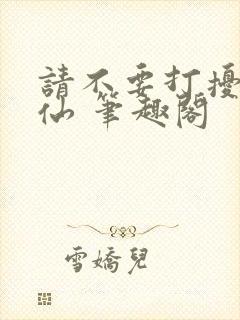 請不要打擾
仙 筆趣閣
雪嬌兒